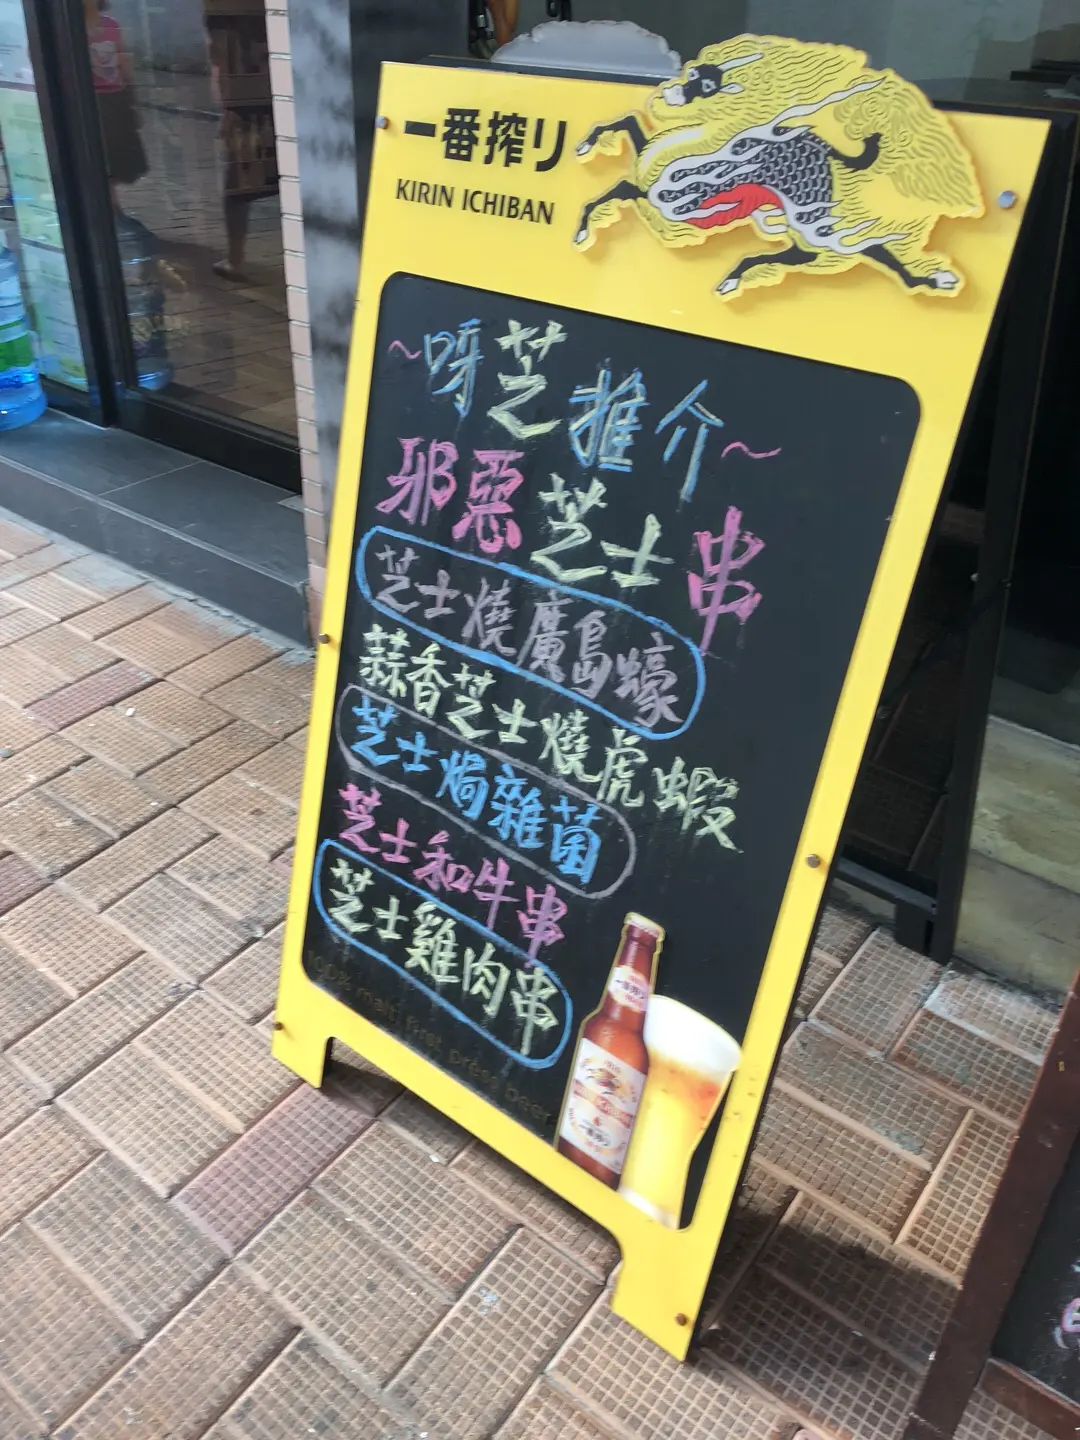 一番搾り
KIRIN ICHIBAN
~呀芝推介~
邪惡芝士串
芝士燒廣島蠔
蒜香芝士燒虎蝦
芝士焗雜菌
芝士和牛串
芝士雞肉串
100% malt first press beer
一番搾り